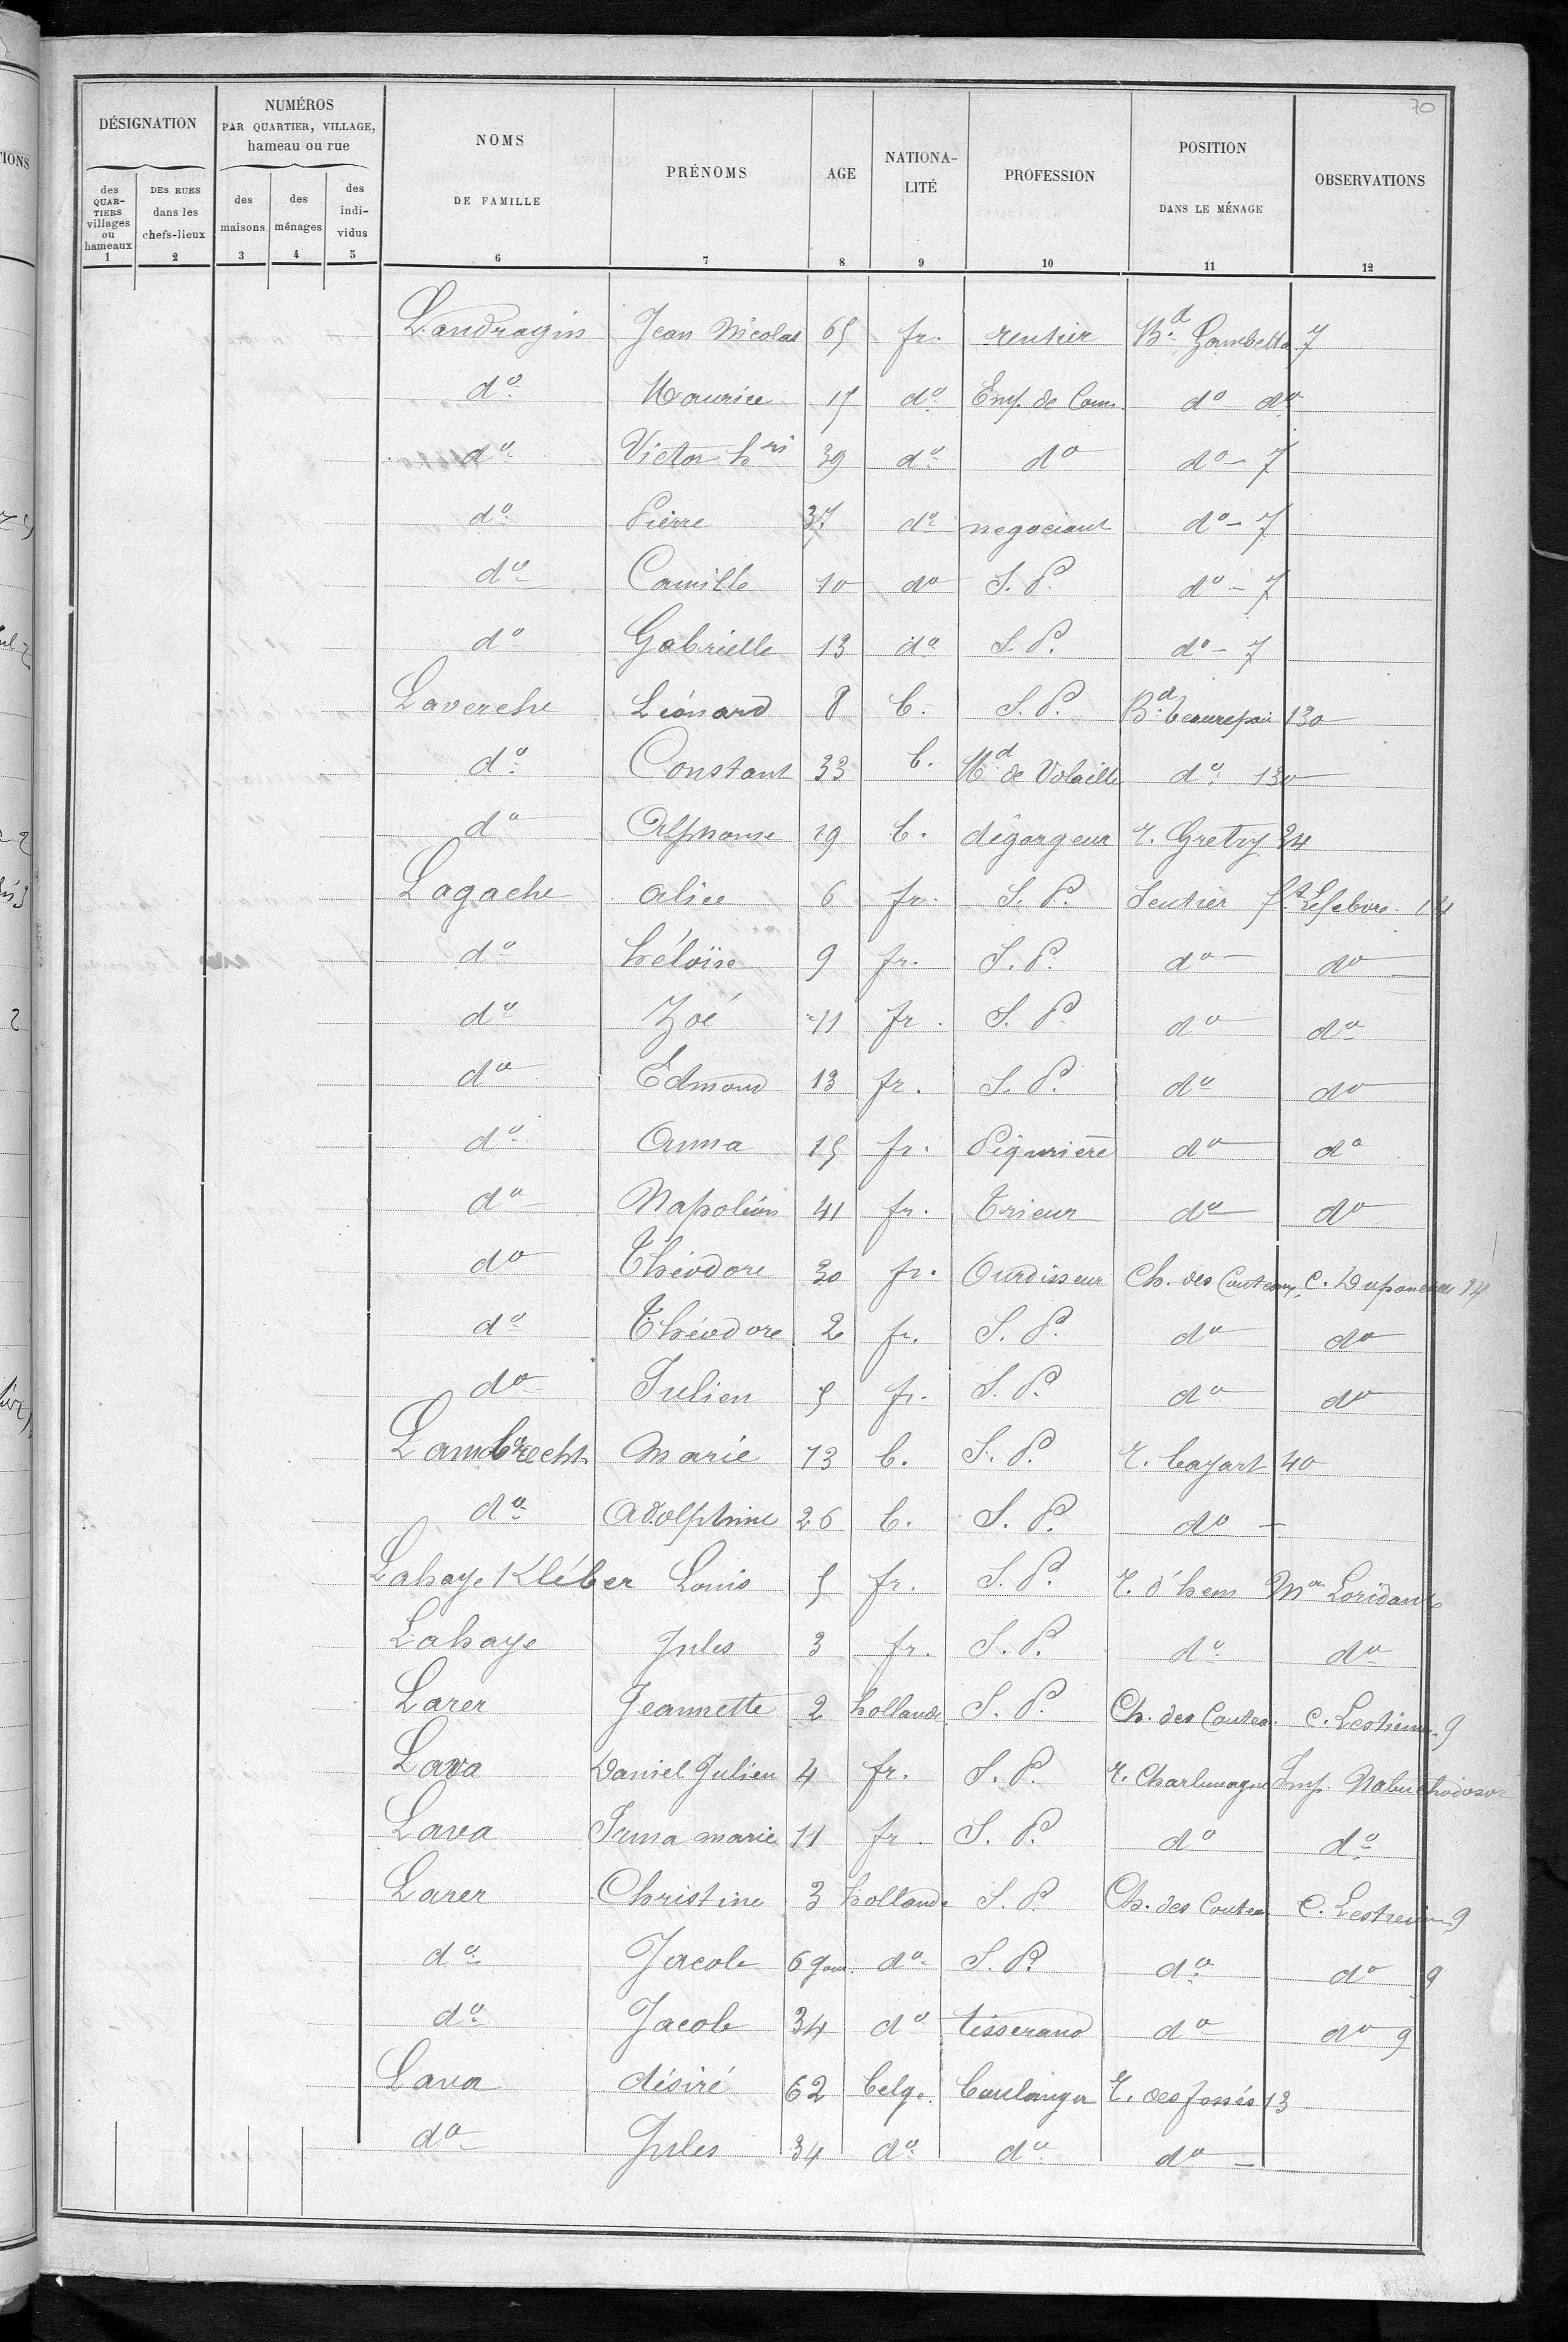 70
DÉSIGNATION
NUMÉROS PAR QUARTIER, VILLAGE, hameau ou rue
NOMS DE FAMILLE
PRÉNOMS
AGE
NATIONA-LITÉ
PROFESSION
POSITION DANS LE MÉNAGE
OBSERVATIONS
des QUAR-TIERS villages ou hameaux
DES RUES dans les chefs-lieux
des maisons
des ménages
des indi-vidus
1 2 3 4 5 6 7 8 9 10 11 12
Landragin Jean Nicolas 65 fr. rentier Bd Gambetta 7
do Maurice 17 do Emp. de Com. do do
do Victor hri 39 do do do - 7
do Pierre 37 do negociant do - 7
do Camille 10 do S. P. do - 7
do Gabrielle 13 do S. P. do - 7
Laverche Léonard 8 b. S. P. Bd beaurepair 130
do Constant 33 b. Md de Volaille do 130
do Alphonse 29 b. dégorgeur r. Gretry 34
Lagache alice 6 fr. S. P. Sentier ft Lefebvre 14
do héloïse 9 fr. S. P. do do
do Zoé 11 fr. S. P. do do
do Edmond 13 fr. S. P. do do
do Anna 15 fr. Piqurière do do
do Napoléon 41 fr. Trieur do do
do Théodore 30 fr. Ourdisseur Ch. des Couteaux, C. Duponchelle 14
do Théodore 2 fr. S. P. do do
do Julien 5 fr. S. P. do do
Lambrecht Marie 73 b. S. P. r. bayart 40
do Adolphine 26 b. S. P. do -
Lahaye Kléber Louis 5 fr. S. P. r. d'hem Mon Loridant
Lahaye Jules 3 fr. S. P. do do
Larer Jeannette 2 hollande S. P. Ch. des Coutea. C. Lestienne 9
Lava Daniel Julien 4 fr. S. P. r. Charlemagne Imp. Nabuchodosor
Lava Irma marie 11 fr. S. P. do do
Larer Christine 3 hollande S. P. Ch. des Coutea C. Lestienne 9
do Jacob 6 jour. do S. P. do do 9
do Jacob 34 do tisserand do do 9
Lava désiré 62 belge. boulanger r. des fossés 13
do Jules 34 do do do -